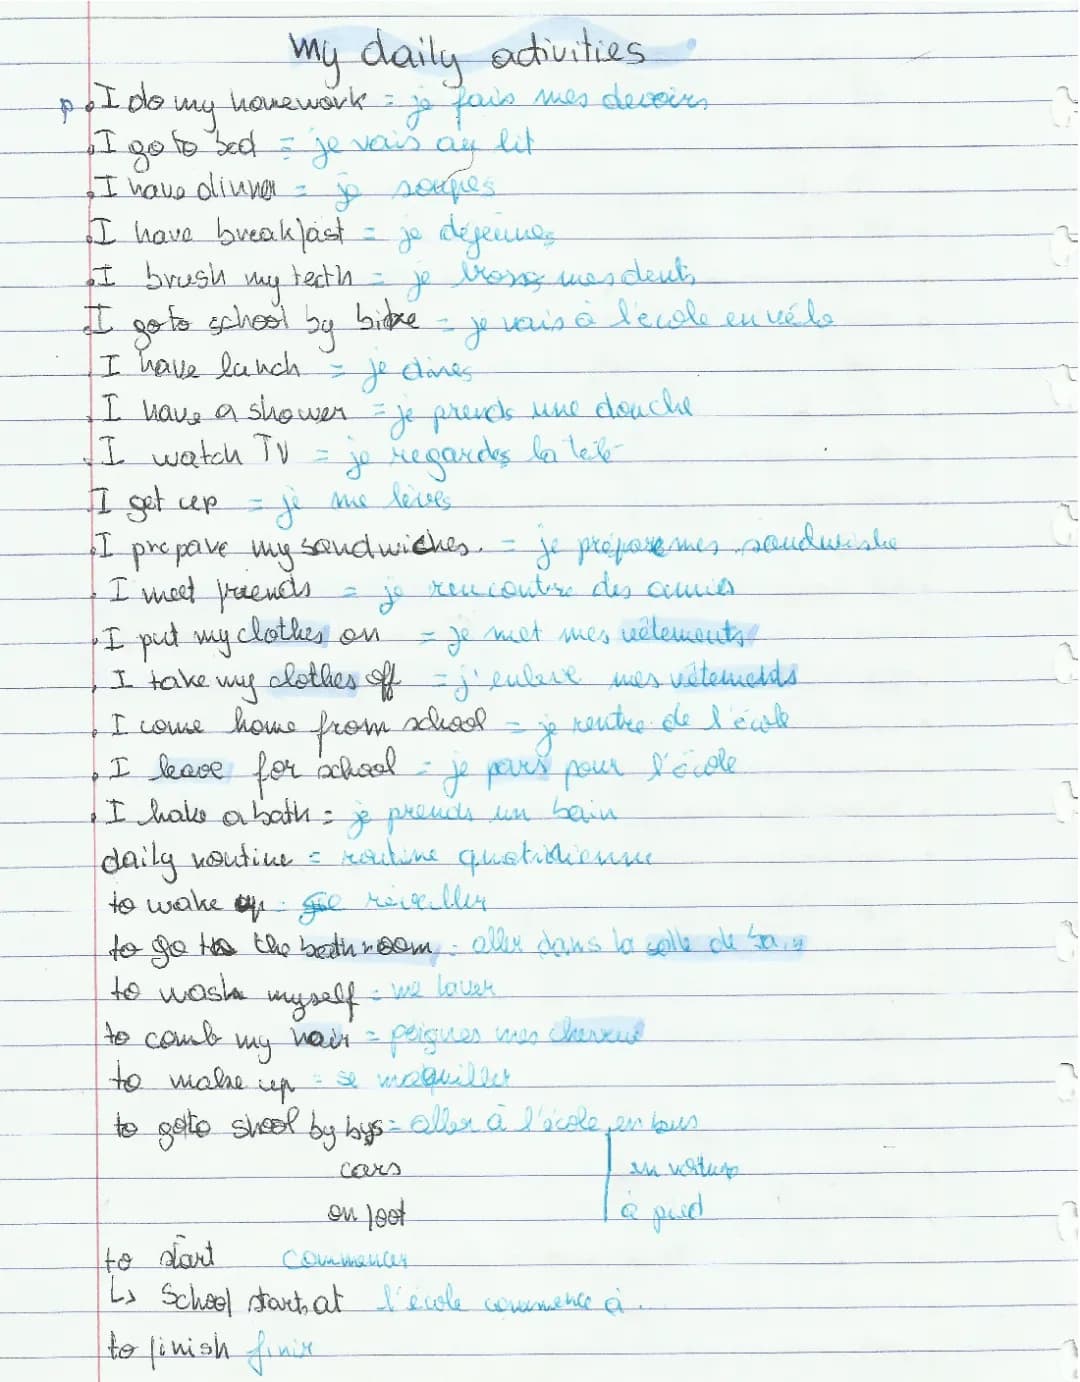 My daily activities
I do my homework = je fais mes devoirs
I go to bed = je vais au lit
I have dinner = je soupes
I have breakfast = je déjeunes
I brush my teeth = je bross mes dents
I go to school by bike = je vais à l'école en vélo
I have lunch = je dines
I have a shower = je prends une douche
I watch TV = je regardes la télé
I get up = je me lèves
I prepare my sandwiches. = je prépare mes sandwishe
I meet friends = je rencontre des amies
I put my clothes on = je met mes vêtements
I take my clothes off = j'enlève mes vêtements
I come home from school = je rentre de l'école
I leave for school = je pars pour l'école
I hake a bath = je prends un bain
daily routine = routine quotidienne
to wake up = se réveiller
to go to the bathroom = aller dans la salle de bain
to wash myself = me laver
to comb my hair = peignes mes cheveux
to make up = se maquiller
to go to shool by bys = aller à l'école en bus
cars en voiture
on foot à pied
to start commencer
↳ School starts at l'école commence à .
to finish finir